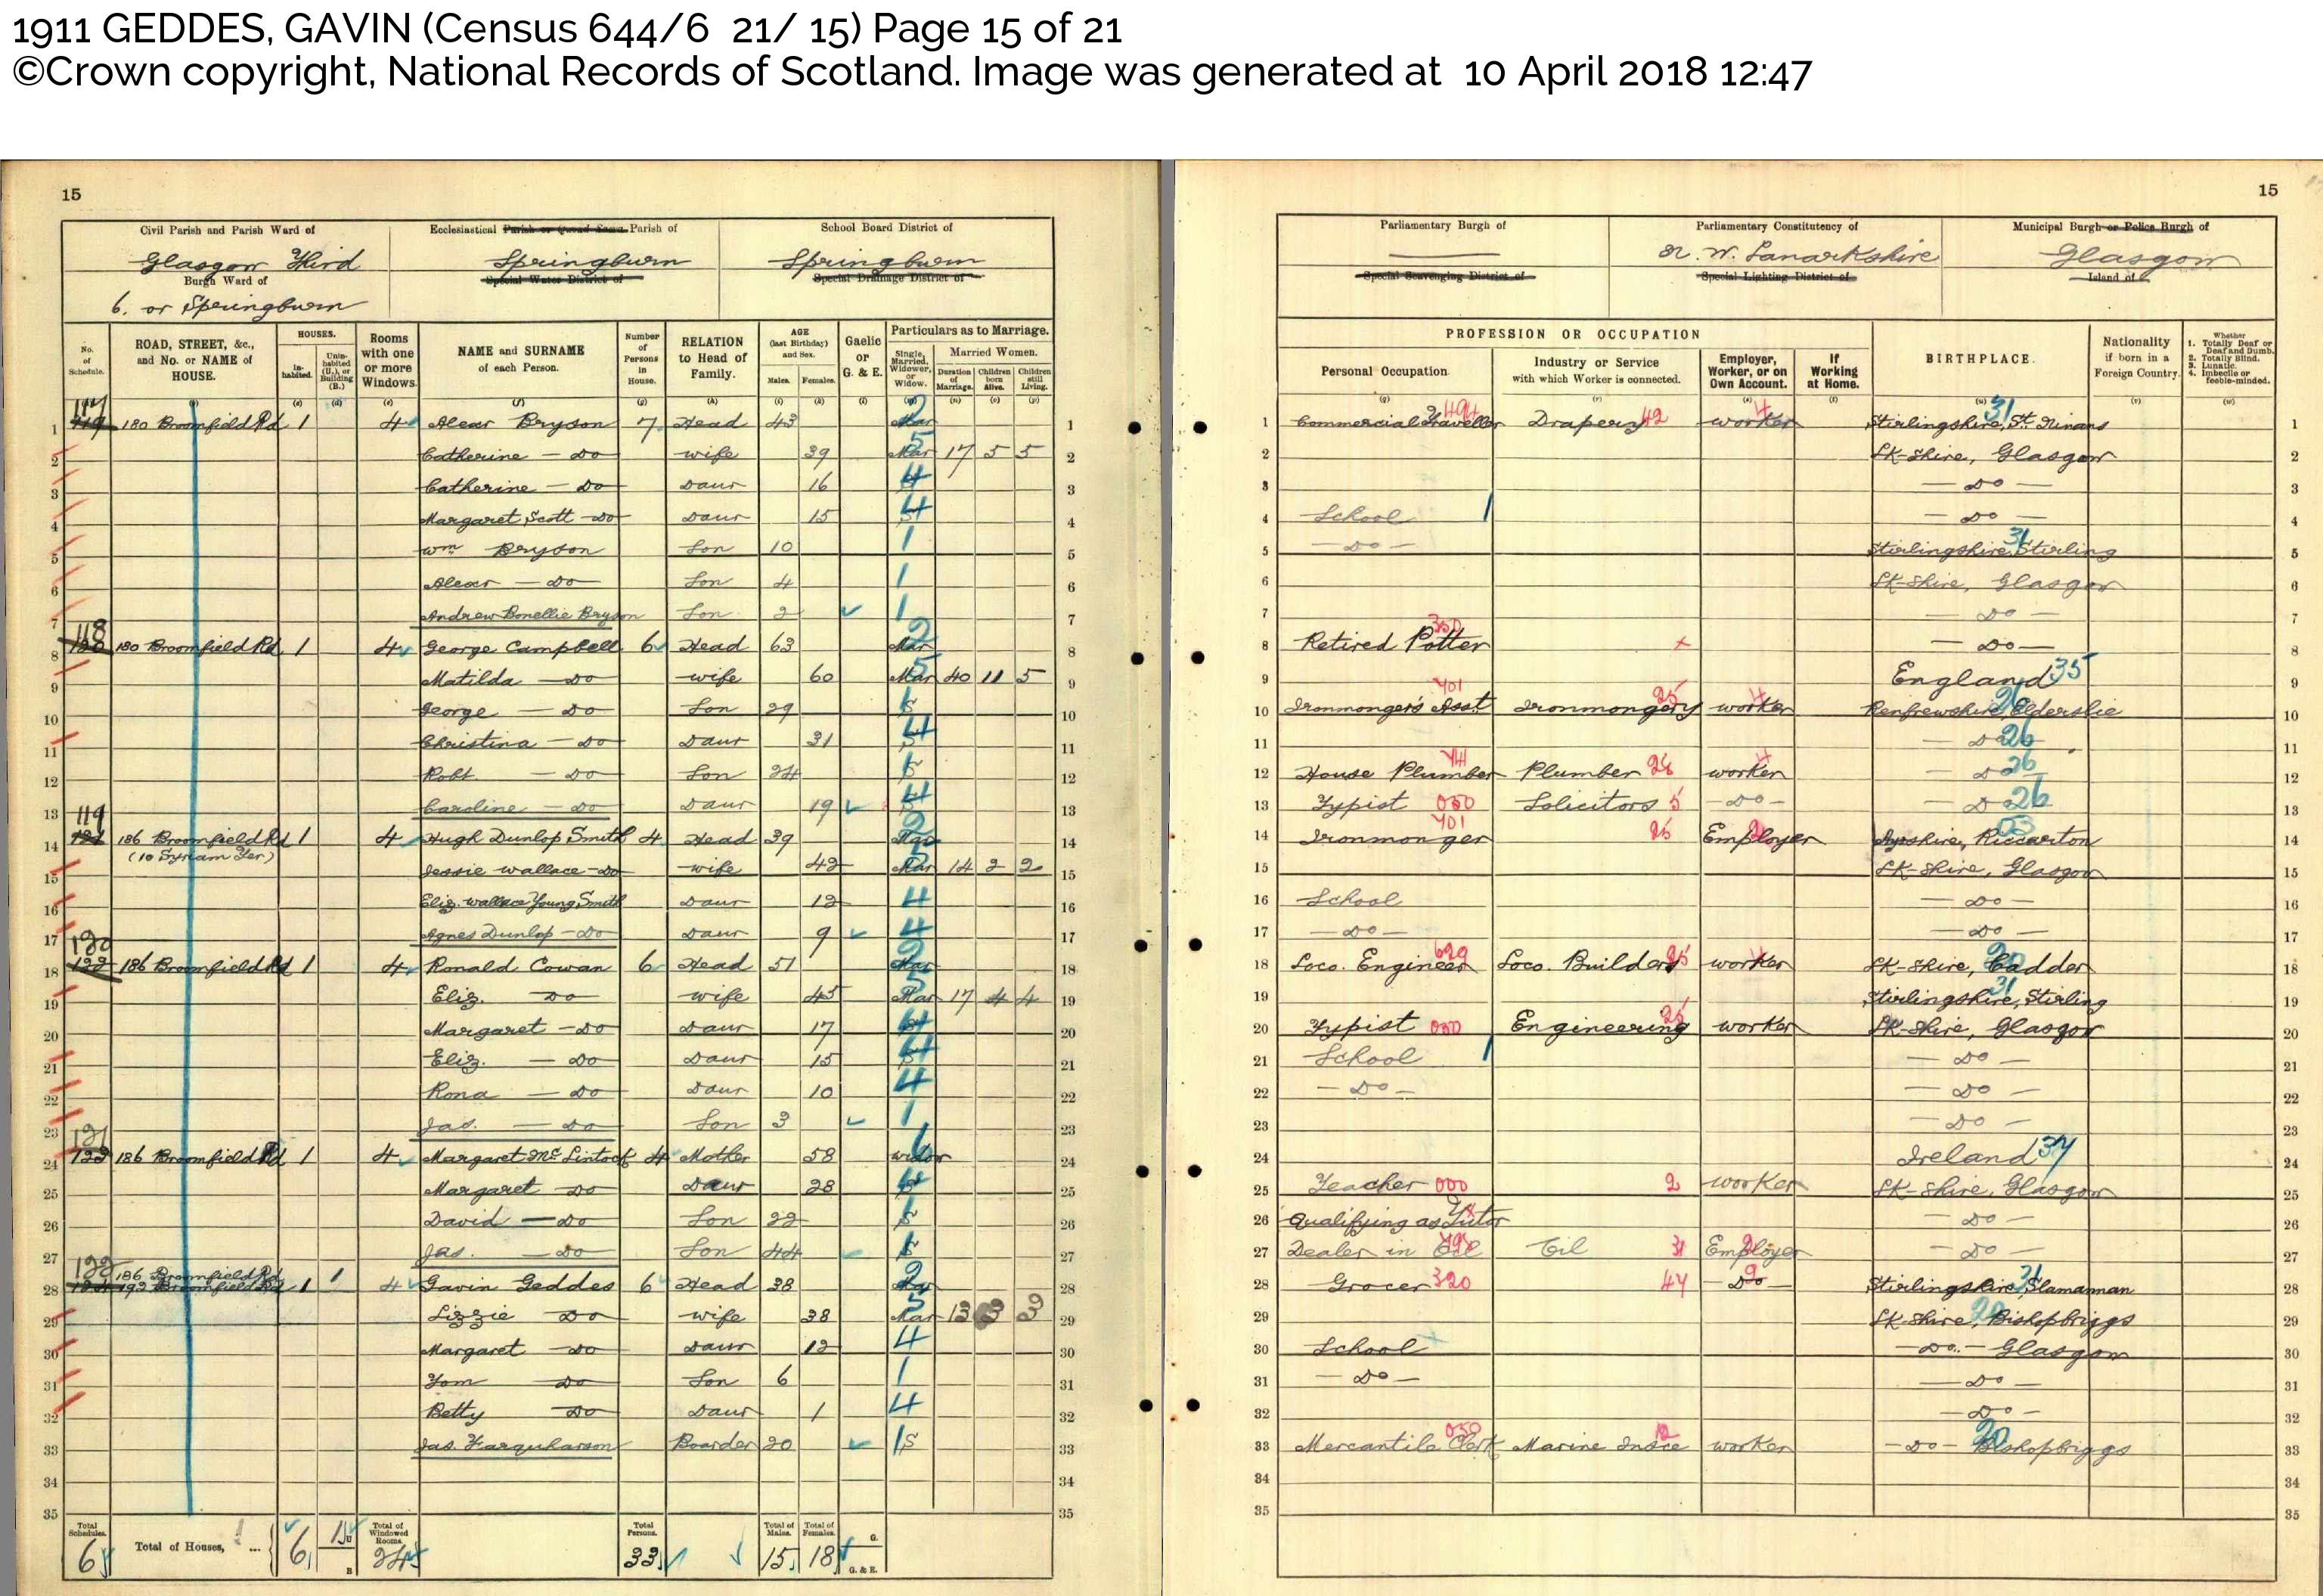 1911 GEDDES, GAVIN (Census 644/6 21/ 15) Page 15 of 21
©Crown copyright, National Records of Scotland. Image was generated at 10 April 2018 12:47
15
15
Civil Parish and Parish Ward of
Glasgow Third
Burgh Ward of
6. or Springburn
Ecclesiastical Parish or Quoad Sacra Parish of
Springburn
Special Water District of
School Board District of
Springburn
Special Drainage District of
Parliamentary Burgh of
Special Scavenging District of
Parliamentary Constituency of
N. W. Lanarkshire
Special Lighting District of
Municipal Burgh or Police Burgh of
Glasgow
Island of
No. of Schedule.
ROAD, STREET, &c., and No. or NAME of HOUSE.
HOUSES.
Inhabited.
Uninhabited (U.), or Building (B.)
Rooms with one or more Windows.
NAME and SURNAME of each Person.
Number of Persons in House.
RELATION to Head of Family.
AGE (last Birthday) and Sex.
Males. Females.
Gaelic or G. & E.
Particulars as to Marriage.
Single, Married, Widower, or Widow.
Married Women.
Duration of Marriage. Children born Alive. Children still Living.
PROFESSION OR OCCUPATION
Personal Occupation.
Industry or Service with which Worker is connected.
Employer, Worker, or on Own Account.
If Working at Home.
BIRTHPLACE.
Nationality if born in a Foreign Country.
Whether 1. Totally Deaf or Deaf and Dumb. 2. Totally Blind. 3. Lunatic. 4. Imbecile or feeble-minded.
1 117 180 Broomfield Rd 1 4 Alexr Bryson 7 Head 43 Mar Commercial Traveller Drapery worker Stirlingshire, St. Ninans
2 Catherine - Do wife 39 Mar 17 5 5 LK-shire, Glasgow
3 Catherine - Do Daur 16 - Do -
4 Margaret Scott - Do Daur 15 School - Do -
5 Wm Bryson Son 10 - Do - Stirlingshire, Stirling
6 Alexr - Do Son 4 LK-shire, Glasgow
7 Andrew Bonellie Bryson Son 2 - Do -
8 118 180 Broomfield Rd 1 4 George Campbell 6 Head 63 Mar Retired Potter - Do -
9 Matilda - Do wife 60 Mar 40 11 5 England
10 George - Do Son 29 S Ironmonger's Asst Ironmongery worker Renfrewshire, Elderslie
11 Christina - Do Daur 31 S - Do
12 Robt. - Do Son 24 S House Plumber Plumber worker - Do
13 Caroline - Do Daur 19 S Typist Solicitors - Do - - Do
14 119 186 Broomfield Rd 1 4 Hugh Dunlop Smith 4 Head 39 Mar Ironmonger Employer Ayrshire, Riccarton
15 Jessie Wallace - Do wife 42 Mar 14 2 2 LK-shire, Glasgow
16 Eliz. Wallace Young Smith Daur 12 School - Do -
17 Agnes Dunlop - Do Daur 9 - Do - - Do -
18 120 186 Broomfield Rd 1 4 Ronald Cowan 6 Head 51 Mar Loco. Engineer Loco. Builders worker LK-shire, Cadder
19 Eliz. Do wife 45 Mar 17 4 4 Stirlingshire, Stirling
20 Margaret - Do Daur 17 S Typist Engineering worker LK-shire, Glasgow
21 Eliz. - Do Daur 15 S School - Do -
22 Rona - Do Daur 10 - Do - - Do -
23 Jas. - Do Son 3 - Do -
24 121 186 Broomfield Rd 1 4 Margaret McLintock 4 Mother 58 widow Ireland
25 Margaret Do Daur 28 S Teacher worker LK-shire, Glasgow
26 David - Do Son 22 S Qualifying as Tutor - Do -
27 Jas. - Do Son 44 S Dealer in Oil Oil Employer - Do -
186 Broomfield Rd 1
28 122 192 Broomfield Rd 1 4 Gavin Geddes 6 Head 38 Mar Grocer - Do - Stirlingshire, Slamannan
29 Lizzie Do wife 38 Mar 13 3 3 LK-shire, Bishopbriggs
30 Margaret Do Daur 12 School - Do - Glasgow
31 Tom Do Son 6 - Do - - Do -
32 Betty Do Daur 1 - Do -
33 Jas. Farquharson Boarder 20 S Mercantile Clerk Marine Insce worker - Do - Bishopbriggs
34
35
Total Schedules. 6
Total of Houses, ... 6 1 U B
Total of Windowed Rooms. 24
Total Persons. 33
Total of Males. 15
Total of Females. 18
G.
G. & E.